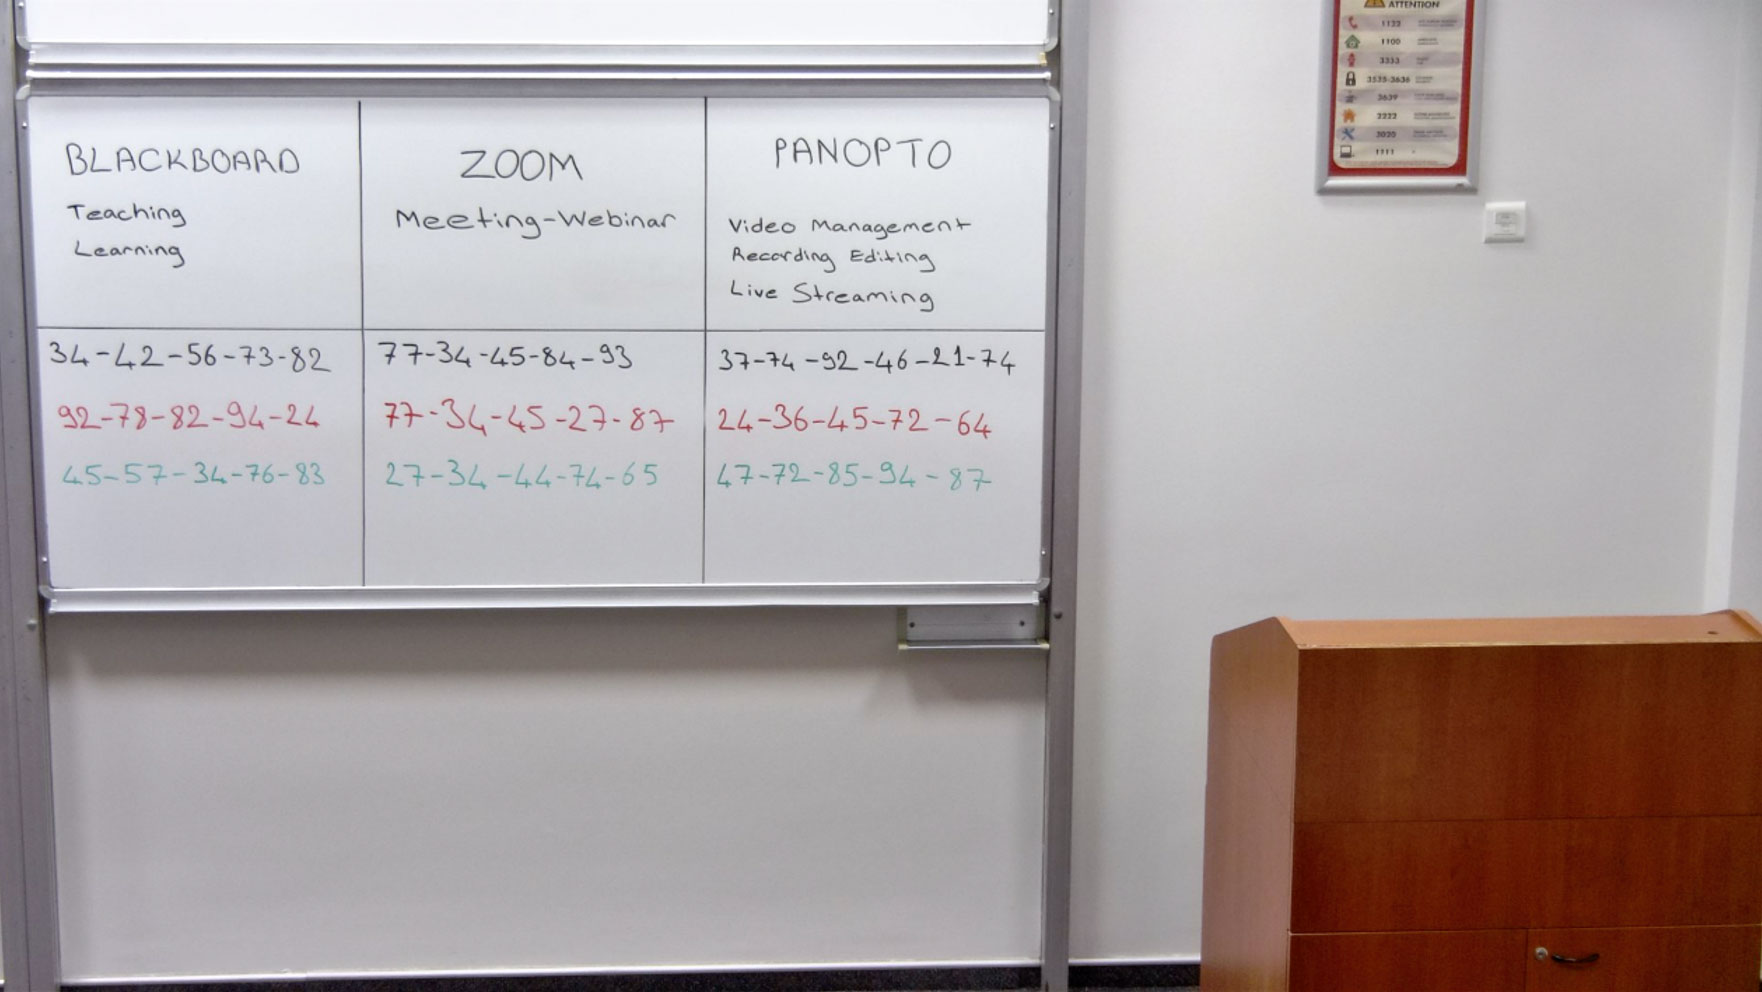 BLACKBOARD
Teaching
Learning
ZOOM
Meeting-Webinar
PANOPTO
Video Management
Recording Editing
Live Streaming
34-42-56-73-82
77-34-45-84-93
37-74-92-46-21-74
92-78-82-94-24
77-34-45-27-87
24-36-45-72-64
45-57-34-76-83
27-34-44-74-65
47-72-85-94-87
ATTENTION
1122
1100
3333
3535-3636
3639
2222
3020
1711